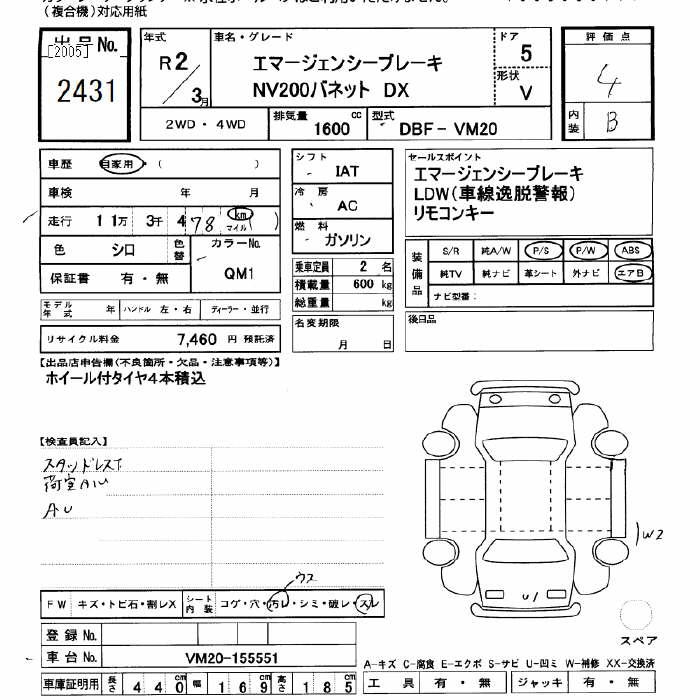 (複合機)対応用紙
出品No. [2005] 2431
年式 R2/3月
車名・グレード エマージェンシーブレーキ
NV200バネット DX
ドア 5
形状 V
評価点 4
内装 B
2WD・4WD 排気量 1600 cc 型式 DBF-VM20
車歴 自家用・( )
車検 年 月
走行 11万 3千 478 km マイル ( )
色 シロ 色替 カラーNo. QM1
保証書 有・無
モデル年式 年 ハンドル 左・右 ディーラー・並行
リサイクル料金 7,460 円 預託済
シフト IAT
冷房 AC
燃料 ガソリン
乗車定員 2 名
積載量 600 kg
総重量 kg
名変期限 月 日
セールスポイント
エマージェンシーブレーキ
LDW(車線逸脱警報)
リモコンキー
装備品 S/R 純A/W P/S P/W ABS
純TV 純ナビ 革シート 外ナビ エアB
ナビ型番:
後日品
【出品店申告欄(不良箇所・欠品・注意事項等)】
ホイール付タイヤ4本積込
【検査員記入】
スタッドレスT
荷室AU
AU
W2
U1
ウス
FW キズ・トビ石・割レX シート内装 コゲ・穴・汚レ・シミ・破レ・スレ
登録No.
車台No. VM20-155551
車庫証明用 長さ 440 cm 幅 169 cm 高さ 185 cm
スペア
A-キズ C-腐食 E-エクボ S-サビ U-凹ミ W-補修 XX-交換済
工具 有・無 ジャッキ 有・無